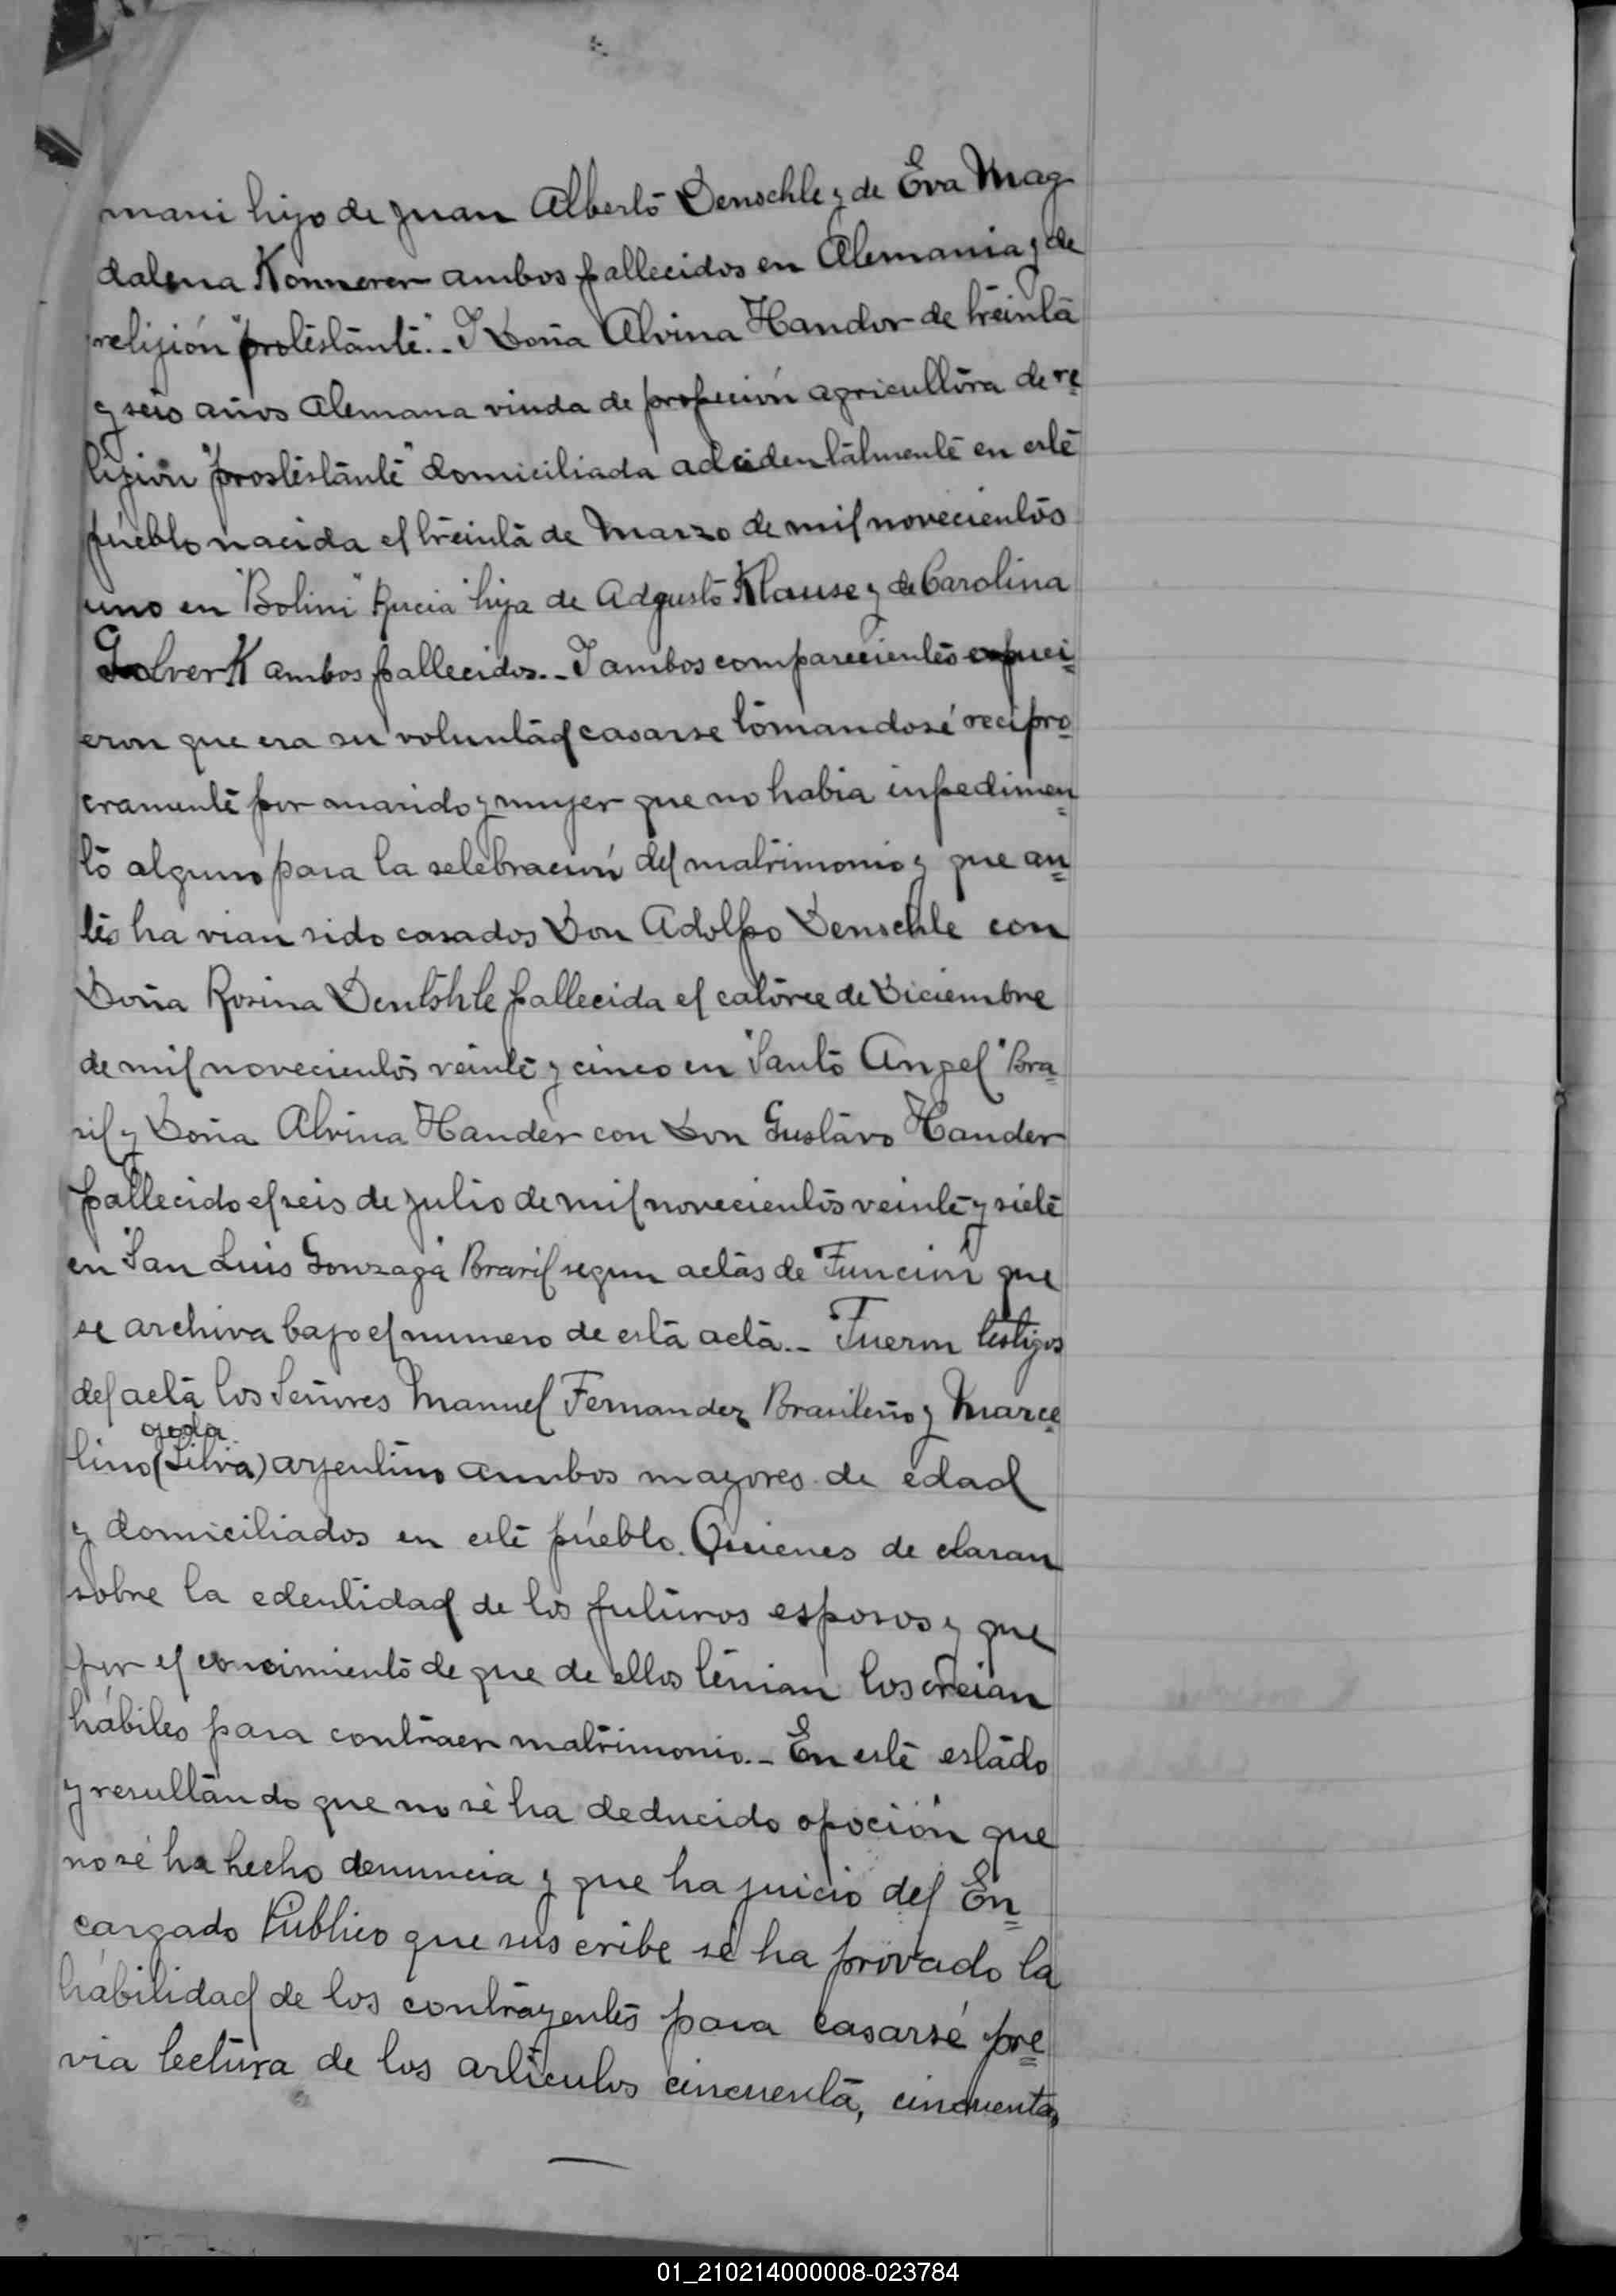 mani hijo de Juan Alberto Denschle y de Eva Mag
dalena Konnerer ambos fallecidos en Alemania y de
relijión "protestante".- I Doña Alvina Handor de treinta
y seis años Alemana viuda de profeción agricultora de re
lijión "prostestante" domiciliada adcidentalmente en este
pueblo nacida el treinta de Marzo de mil novecientos
uno en "Bolini" Rucia hija de Adgusto Klause y de Carolina
Golverk ambos fallecidos.- I ambos comparecientes expuci=
eron que era su voluntad casarse tomandosé recipro
cramente por marido y mujer que no habia inpedimen=
to alguno para la selebración del matrimonio y que an=
tes ha vian sido casados Don Adolfo Denschle con
Doña Rosina Dentshle fallecida el catorce de Diciembre
de mil novecientos veinte y cinco en "Santo Angel" Bra
sil y Doña Alvina Hander con Don Gustavo Hander
fallecido el seis de Julio de mil novecientos veinte y siete
en "San Luis Gonzaga" Brasil segun actas de Función que
se archiva bajo el numero de esta acta.- Fueron testigos
del acta los Señores Manuel Fernandez Brasileño y Marce
ojeda
lino (Silva) arjentino ambos mayores de edad
y domiciliados en este pueblo. Quienes de claran
sobre la edentidad de los futuros esposos y que
por el conocimiento de que de ellos tenian los creian
hábiles para contraer matrimonio.- En este estado
y resultando que no sé ha deducido opoción que
no sé ha hecho denuncia y que ha juicio del En=
cargado Publico que sus cribe sé ha provado la
hábilidad de los contrayentes para casarsé pre=
via lectura de los articulos cincuenta, cincuenta
01_210214000008-023784